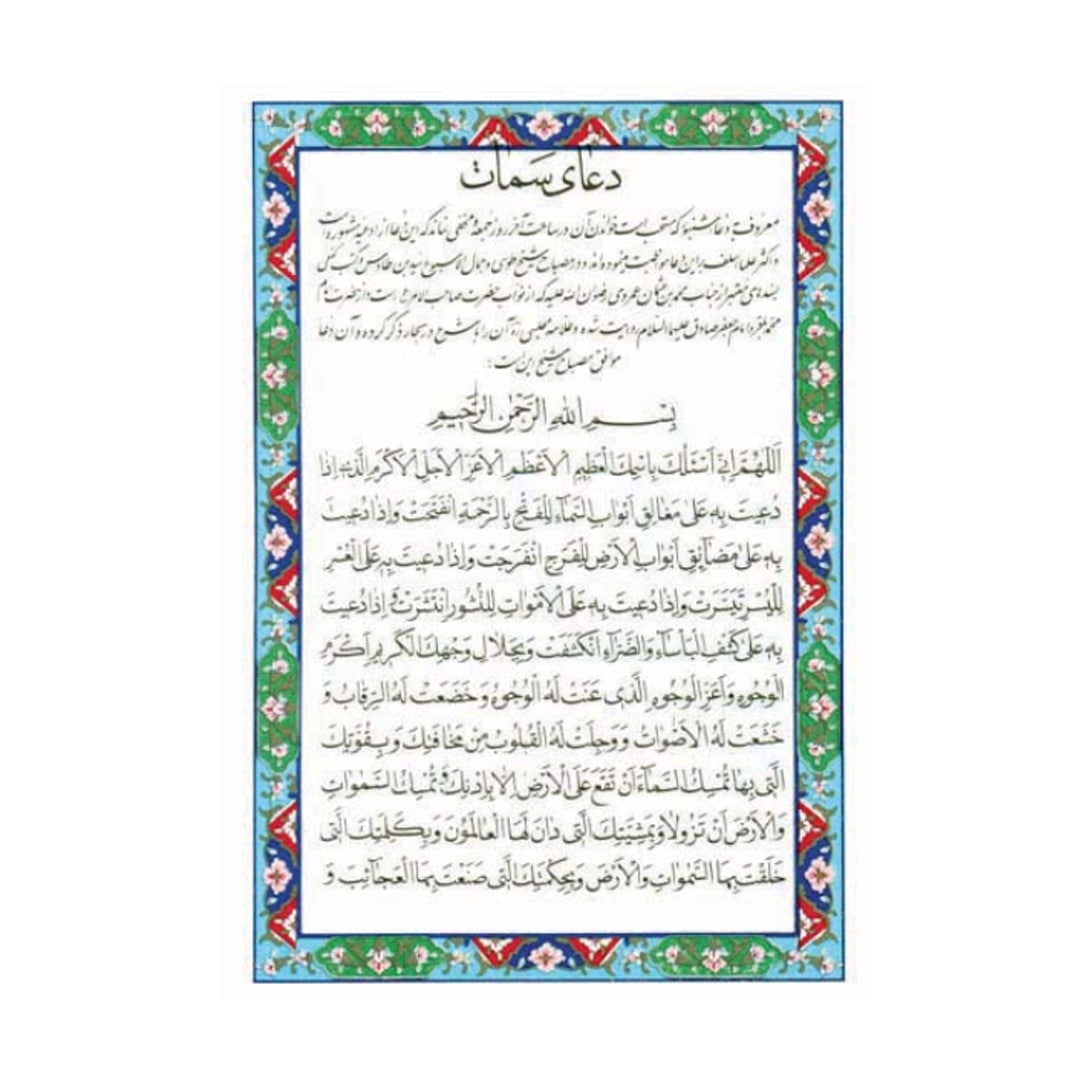 دعای سمات
معروف به دعا شبّور که مستحب است خواندن آن در ساعت آخر روز جمعه و مخفی نماند که این دعا از ادعیه مشهوره است
و اکثر علماء سلف بر این دعا مواظبت مینموده‌اند و در مصباح شیخ طوسی و جمال الاسبوع سید بن طاوس و کتب کفعمی
بسندهای معتبر از جناب محمد بن عثمان عمروی رضوان الله علیه که از نواب حضرت صاحب الامر ع است و از حضرت امام
محمد باقر و امام جعفر صادق علیهما السلام روایت شده و علامه مجلسی ره آن را با شرح در بحار ذکر کرده و آن دعا
موافق مصباح شیخ این است :
بِسْمِ اللهِ الرَّحْمٰنِ الرَّحِیمِ
اَللّٰهُمَّ اِنّی اَسْئَلُکَ بِاسْمِکَ الْعَظیمِ الْاَعْظَمِ الْاَعَزِّ الْاَجَلِّ الْاَکْرَمِ الَّذی اِذا
دُعیتَ بِهِ عَلیٰ مَغالِقِ اَبْوابِ السَّمآءِ لِلْفَتْحِ بِالرَّحْمَةِ انْفَتَحَتْ وَاِذا دُعیتَ
بِهِ عَلیٰ مَضآئِقِ اَبْوابِ الْاَرْضِ لِلْفَرَجِ انْفَرَجَتْ وَاِذا دُعیتَ بِهِ عَلَی الْعُسْرِ
لِلْیُسْرِ تَیَسَّرَتْ وَاِذا دُعیتَ بِهِ عَلَی الْاَمْواتِ لِلنُّشُورِ انْتَشَرَتْ وَ اِذا دُعیتَ
بِهِ عَلیٰ کَشْفِ الْبَاْسآءِ وَالضَّرّآءِ انْکَشَفَتْ وَبِجَلالِ وَجْهِکَ الْکَریمِ اَکْرَمِ
الْوُجُوهِ وَاَعَزِّ الْوُجُوهِ الَّذی عَنَتْ لَهُ الْوُجُوهُ وَ خَضَعَتْ لَهُ الرِّقابُ وَ
خَشَعَتْ لَهُ الْاَصْواتُ وَ وَجِلَتْ لَهُ الْقُلُوبُ مِنْ مَخافَتِکَ وَ بِقُوَّتِکَ
الَّتی بِها تُمْسِکُ السَّمآءَ اَنْ تَقَعَ عَلَی الْاَرْضِ اِلّا بِاِذْنِکَ وَ تُمْسِکُ السَّمٰواتِ
وَالْاَرْضَ اَنْ تَزُولا وَبِمَشِیَّتِکَ الَّتی دانَ لَهَا الْعالَمُونَ وَبِکَلِمَتِکَ الَّتی
خَلَقْتَ بِهَا السَّمٰواتِ وَالْاَرْضَ وَبِحِکْمَتِکَ الَّتی صَنَعْتَ بِهَا الْعَجآئِبَ وَ